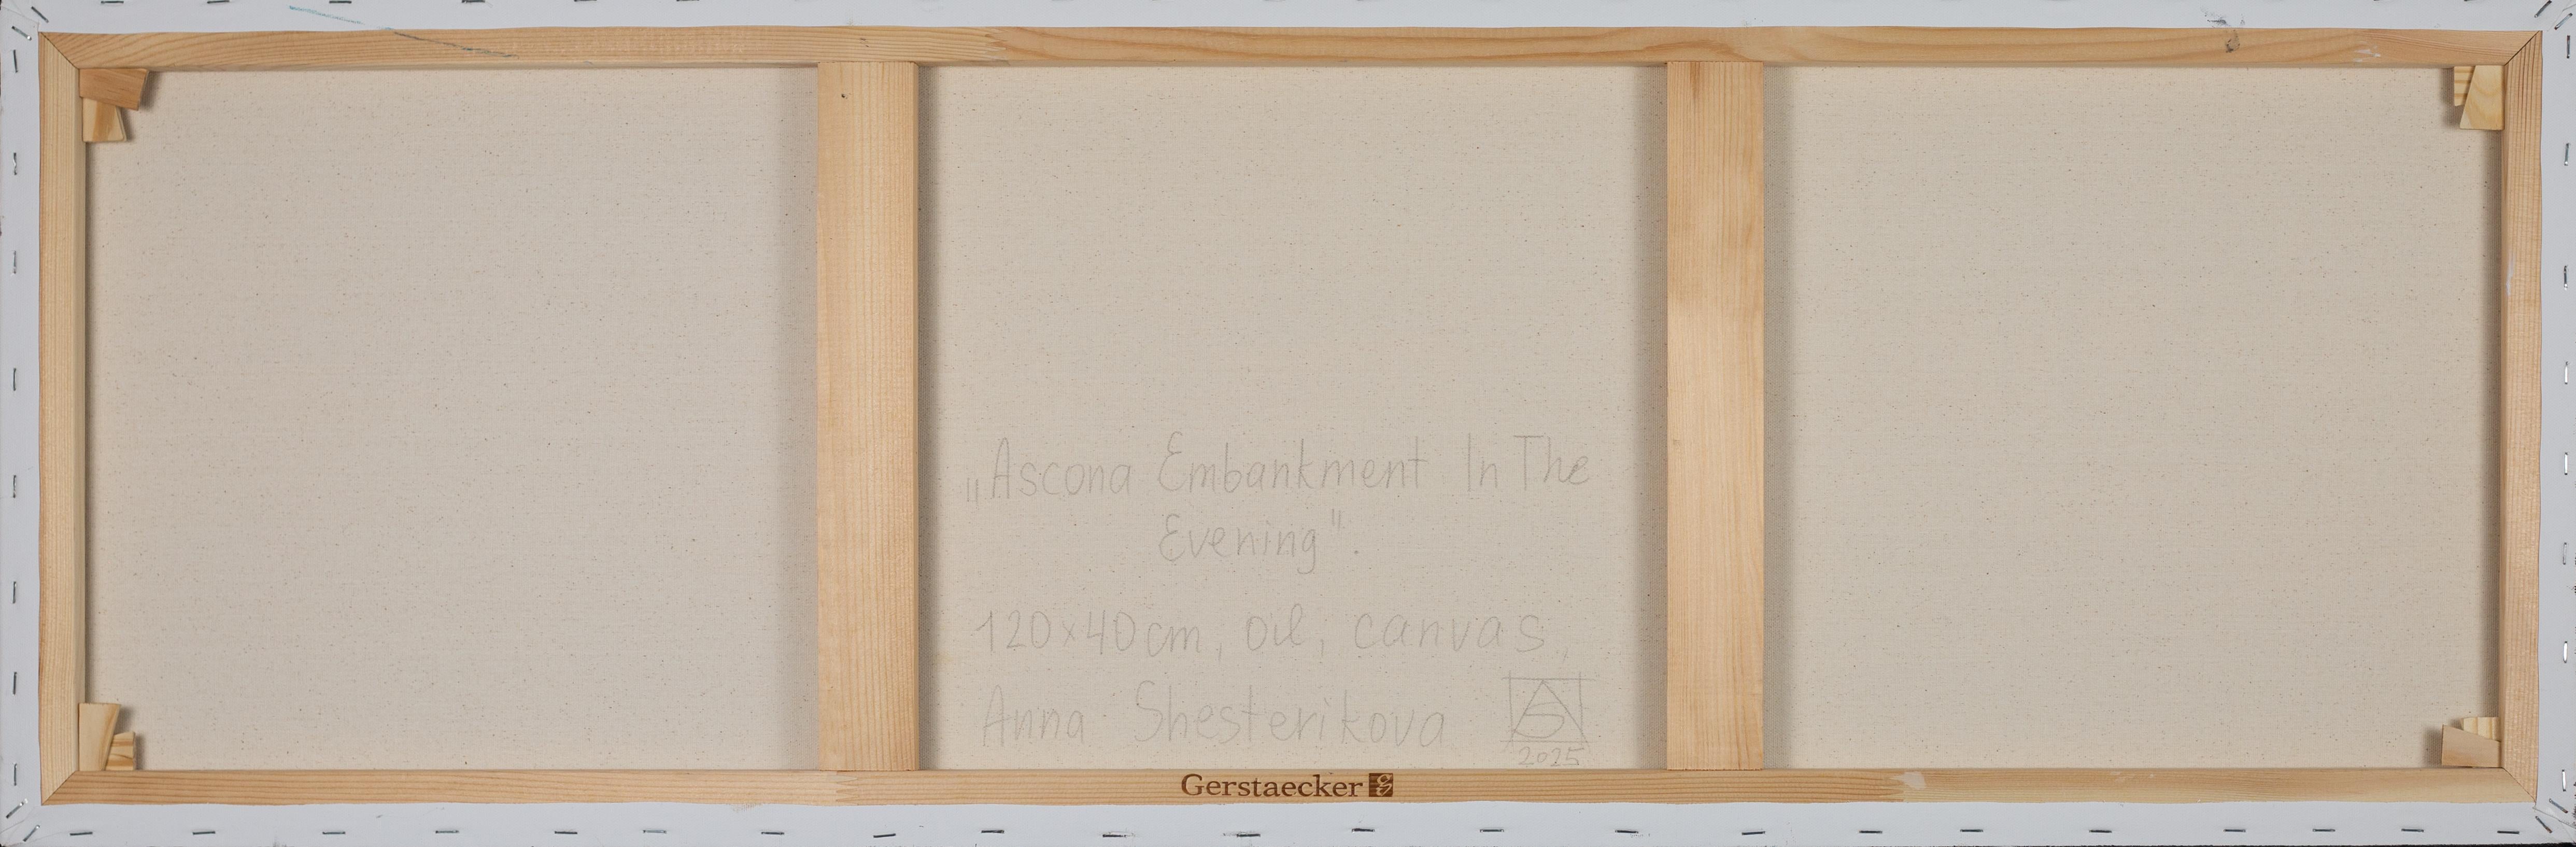 „Ascona Embankment In The
Evening".
120×40cm, oil, canvas,
Anna Shesterikova
2025
Gerstaecker